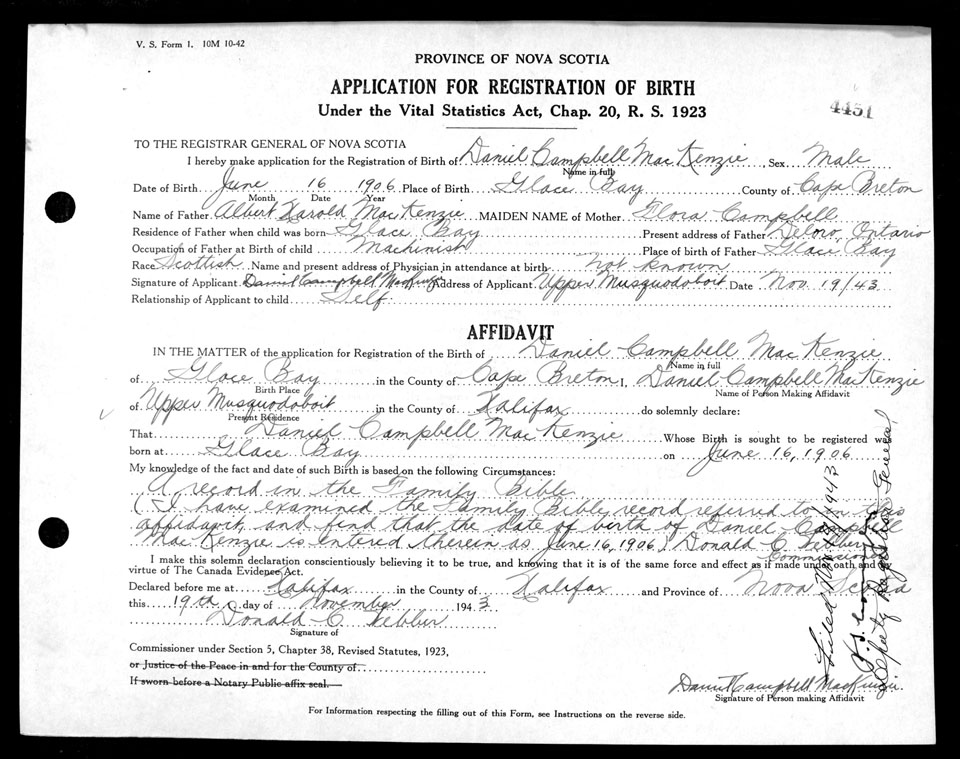 V. S. Form 1. 10M 10-42
PROVINCE OF NOVA SCOTIA
APPLICATION FOR REGISTRATION OF BIRTH
Under the Vital Statistics Act, Chap. 20, R. S. 1923
4451
TO THE REGISTRAR GENERAL OF NOVA SCOTIA
I hereby make application for the Registration of Birth of Daniel Campbell MacKenzie Sex Male
Name in full
Date of Birth June 16 1906 Place of Birth Glace Bay County of Cape Breton
Month Day Year
Name of Father Albert Harold MacKenzie MAIDEN NAME of Mother Flora Campbell
Residence of Father when child was born Glace Bay Present address of Father Deloro, Ontario
Occupation of Father at Birth of child Machinist Place of birth of Father Glace Bay
Race Scottish Name and present address of Physician in attendance at birth not known
Signature of Applicant Daniel Campbell MacKenzie Address of Applicant Upper Musquodoboit Date Nov 19/43
Relationship of Applicant to child Self
AFFIDAVIT
IN THE MATTER of the application for Registration of the Birth of Daniel Campbell MacKenzie
Name in full
of Glace Bay in the County of Cape Breton I, Daniel Campbell MacKenzie
Birth Place Name of Person Making Affidavit
of Upper Musquodoboit in the County of Halifax do solemnly declare:
Present Residence
That Daniel Campbell MacKenzie Whose Birth is sought to be registered was
born at Glace Bay on June 16, 1906
My knowledge of the fact and date of such Birth is based on the following Circumstances:
A record in the Family Bible
(I have examined the Family Bible record referred to in this
affidavit and find that the date of birth of Daniel Campbell
MacKenzie is entered therein as June 16, 1906) Donald C.
Commissioner
I make this solemn declaration conscientiously believing it to be true, and knowing that it is of the same force and effect as if made under oath and by
virtue of The Canada Evidence Act.
Declared before me at Halifax in the County of Halifax and Province of Nova Scotia
this 19th day of November 1943
Donald C.
Signature of
Commissioner under Section 5, Chapter 38, Revised Statutes, 1923,
or Justice of the Peace in and for the County of
If sworn before a Notary Public affix seal.
Daniel Campbell MacKenzie
Signature of Person making Affidavit
For Information respecting the filling out of this Form, see Instructions on the reverse side.
Filed Nov 1943
Deputy Registrar General